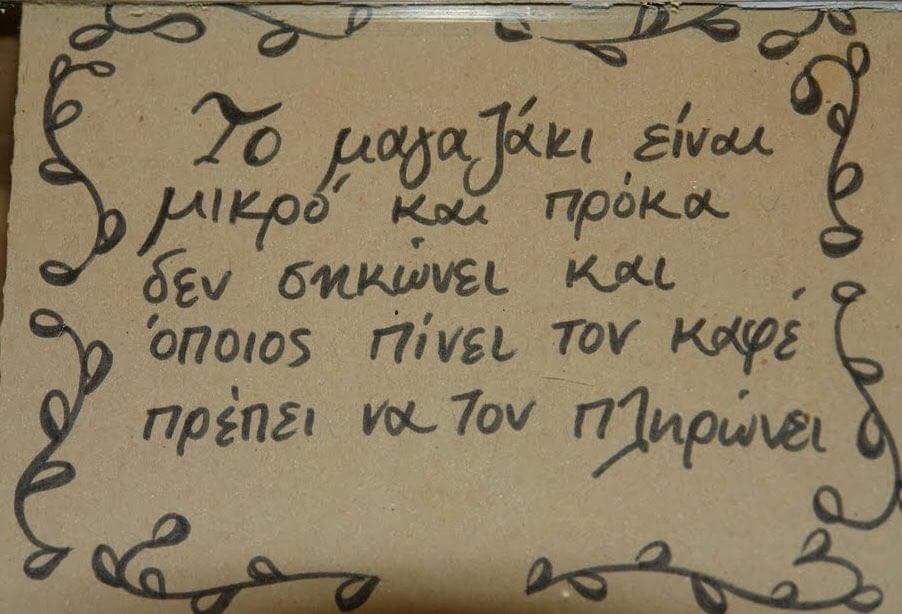 Το μαγαζάκι είναι
μικρό και πρόκα
δεν σηκώνει και
όποιος πίνει τον καφέ
πρέπει να τον πληρώνει